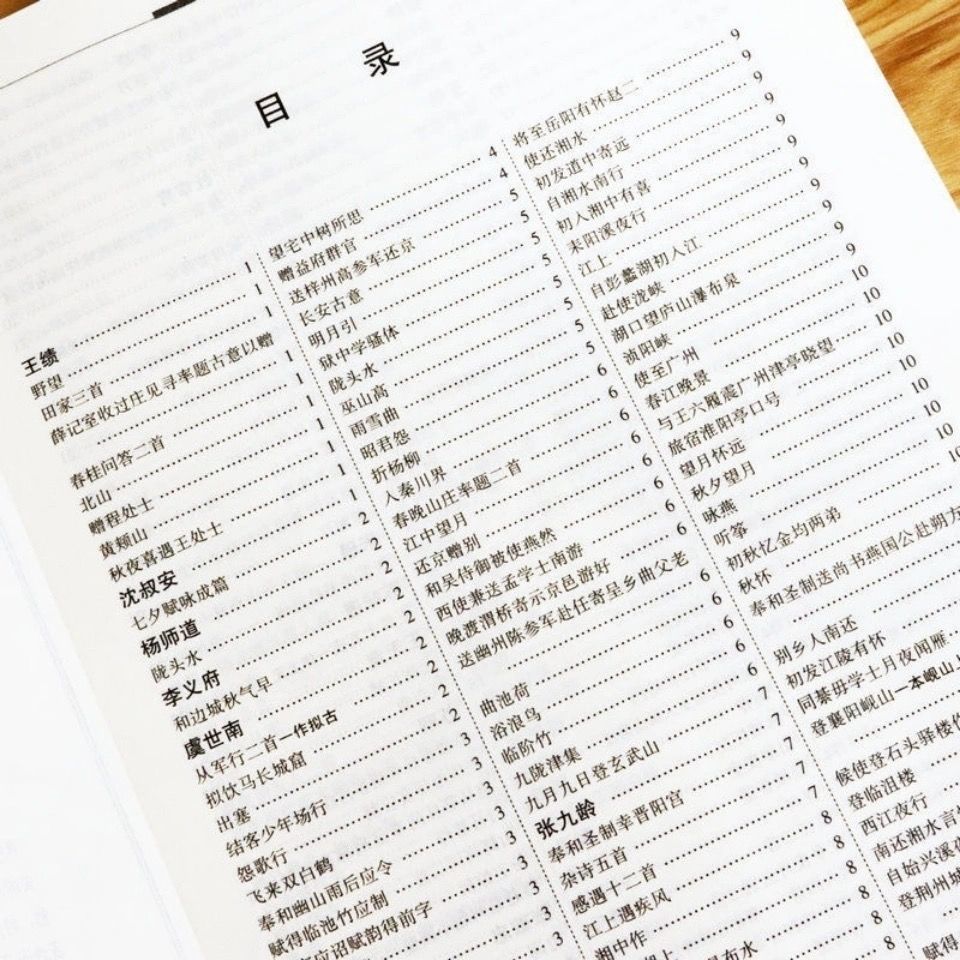 目 录
王绩
野望
田家三首
薛记室收过庄见寻率题古意以赠
春桂问答二首
北山
赠程处士
黄颊山
秋夜喜遇王处士
沈叔安
七夕赋咏成篇
杨师道
陇头水
李义府
和边城秋气早
虞世南
从军行二首一作拟古
拟饮马长城窟
出塞
结客少年场行
怨歌行
飞来双白鹤
奉和幽山雨后应令
赋得临池竹应制
应诏赋韵得前字
望宅中树所思
赠益府群官
送梓州高参军还京
长安古意
明月引
狱中学骚体
陇头水
巫山高
雨雪曲
昭君怨
折杨柳
入秦川界
春晚山庄率题二首
江中望月
还京赠别
和吴侍御被使燕然
西使兼送孟学士南游
晚渡渭桥寄示京邑游好
送幽州陈参军赴任寄呈乡曲父老
曲池荷
浴浪鸟
临阶竹
九陇津集
九月九日登玄武山
张九龄
奉和圣制幸晋阳宫
杂诗五首
感遇十二首
江上遇疾风
湘中作
将至岳阳有怀赵二
使还湘水
初发道中寄远
自湘水南行
初入湘中有喜
耒阳溪夜行
江上
自彭蠡湖初入江
赴使泷峡
湖口望庐山瀑布泉
浈阳峡
使至广州
春江晚景
与王六履震广州津亭晓望
旅宿淮阳亭口号
望月怀远
秋夕望月
咏燕
听筝
初秋忆金均两弟
秋怀
奉和圣制送尚书燕国公赴朔方
别乡人南还
初发江陵有怀
同綦毋学士月夜闻雁
登襄阳岘山一本岘山上
候使登石头驿楼作
登临沮楼
西江夜行
南还湘水言
自始兴溪夜
登荆州城
赋得